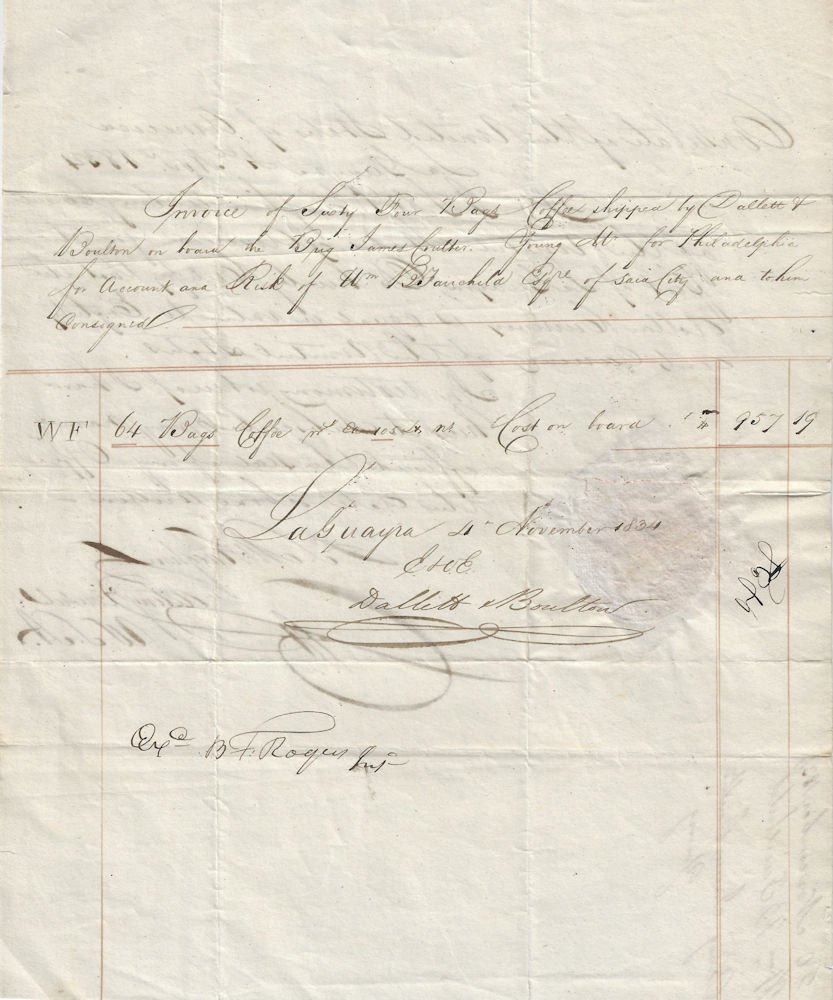 Invoice of Sixty Four Bags Coffee shipped by Dallett &
Boulton on board the Brig James Coulter. Young Mr for Philadelphia
for Account and Risk of Wm B Fairchild Esqre of said City and to him
Consigned
WF 64 Bags Coffee nt Cost on board 957 19
LaGuayra 4th November 1834
E & O.E.
Dallett & Boulton
Exd B F. Rogers